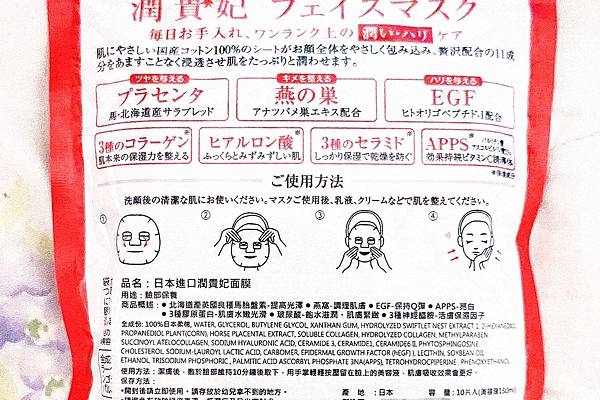 潤貴妃 フェイスマスク
毎日お手入れ、ワンランク上の 潤い・ハリ ケア
肌にやさしい国産コットン100%のシートがお顔全体をやさしく包み込み、贅沢配合の11成
分をあますことなく浸透させ肌をたっぷりと潤わせます。
ツヤを与える
プラセンタ
馬・北海道産サラブレッド
キメを整える
燕の巣
アナツバメ巣エキス配合
ハリを与える
EGF
ヒトオリゴペプチド-1配合
3種のコラーゲン※
肌本来の保湿力を整える
ヒアルロン酸※
ふっくらとみずみずしい肌
3種のセラミド※
しっかり保湿で乾燥を防ぐ
APPS※
効果持続ビタミンC誘導体
※保湿成分
ご使用方法
洗顔後の清潔な肌にお使いください。マスクご使用後、乳液、クリームなどで肌を整えてください。
① ② ③ ④
品名：日本進口潤貴妃面膜
用途：臉部保養
商品概述：● 北海道產英國良種馬胎盤素-提高光澤 ● 燕窩-調理肌膚 ● EGF-保持Q彈 ● APPS-亮白
● 3種膠原蛋白-肌膚水嫩光滑 ● 玻尿酸-飽水嫩潤、肌膚緊緻 ● 3種神經醯胺-活膚保濕因子
全成份: 100%日本柔棉, WATER, GLYCEROL, BUTYLENE GLYCOL, XANTHAN GUM, HYDROLYZED SWIFTLET NEST EXTRACT 1, 2-HEXANEDIOL,
PROPANEDIOL PLANT(CORN), HORSE PLACENTAL EXTRACT, SOLUBLE COLLAGEN, HYDROLYZED COLLAGEN, METHYLPARABEN
SUCCINOYL ATELOCOLLAGEN, SODIUM HYALURONIC ACID, CERAMIDE 3, CERAMIDE1, CERAMIDE6 II, PHYTOSPHINGOSINE,
CHOLESTEROL, SODIUM-LAUROYL LACTIC ACID, CARBOMER, EPIDERMAL GROWTH FACTOR (hEGF), LECITHIN, SOYBEAN OIL
ETHANOL TRISODIUM PHOSPHORIC, PALMITIC ACID ASCORBYL PHOSPHATE 3NA(APPS), TETROHYDROCPIPERINE, PHENOXYETHANOL
使用方法：潔膚後，敷於臉部維持10分鐘後取下，用手掌輕輕按壓留在臉上的美容液，肌膚吸收效果會更好。
保存方法：
•開封後請立即使用，請存放於幼兒拿不到的地方。
產　地：日本
容　量：10片入(美容液150ml)